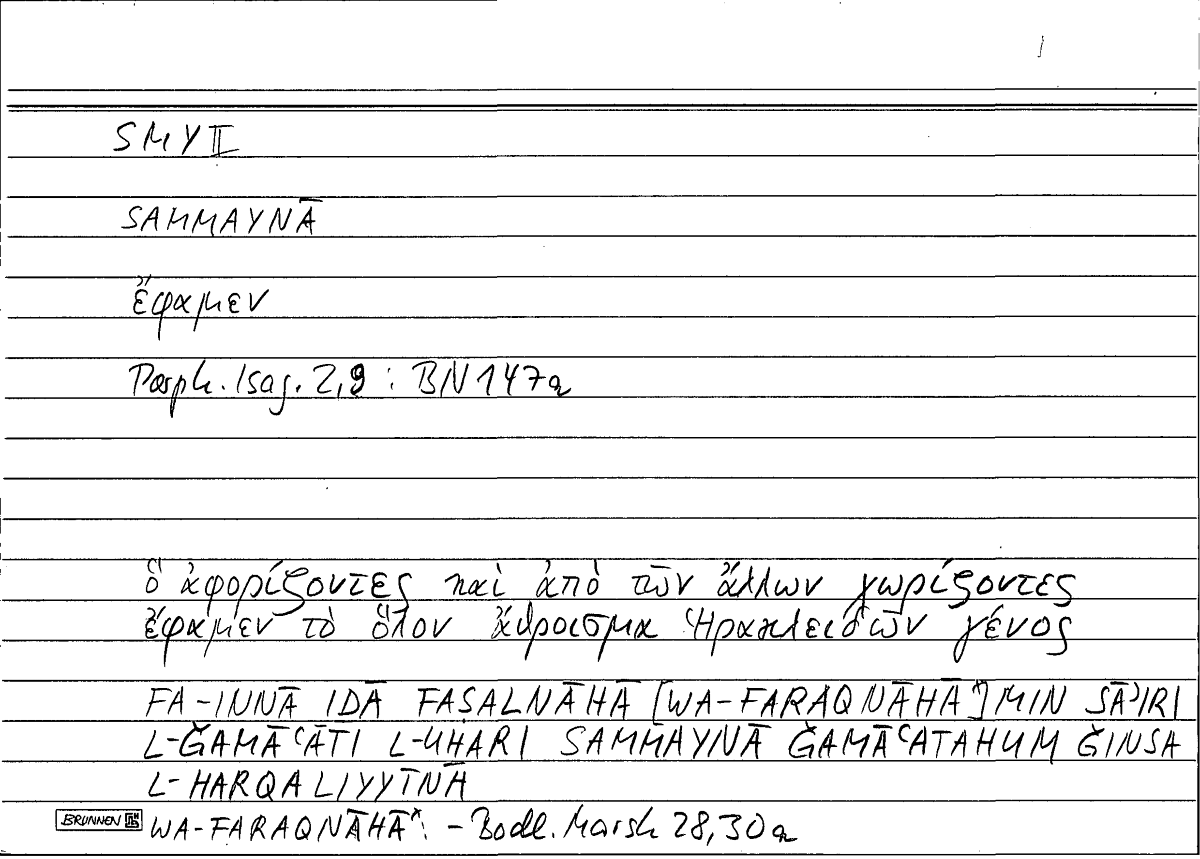 SMY II
SAMMAYNĀ
ἔφαμεν
Porph. Isag. 2,9 : BN 147a
ὃ ἀφορίζοντες καὶ ἀπὸ τῶν ἄλλων χωρίζοντες
ἔφαμεν τὸ ὅλον ἄθροισμα Ἡρακλειδῶν γένος
FA-INNĀ IDĀ FASALNĀHĀ [WA-FARAQNĀHĀ*] MIN SĀʾIRI
L-ǦAMĀʿĀTI L-UHARI SAMMAYNĀ ǦAMĀʿATAHUM ǦINSA
L-HARQALIYYĪNĀ
BRUNNEN WA-FARAQNĀHĀ*: - Bodl. Marsh 28,30a